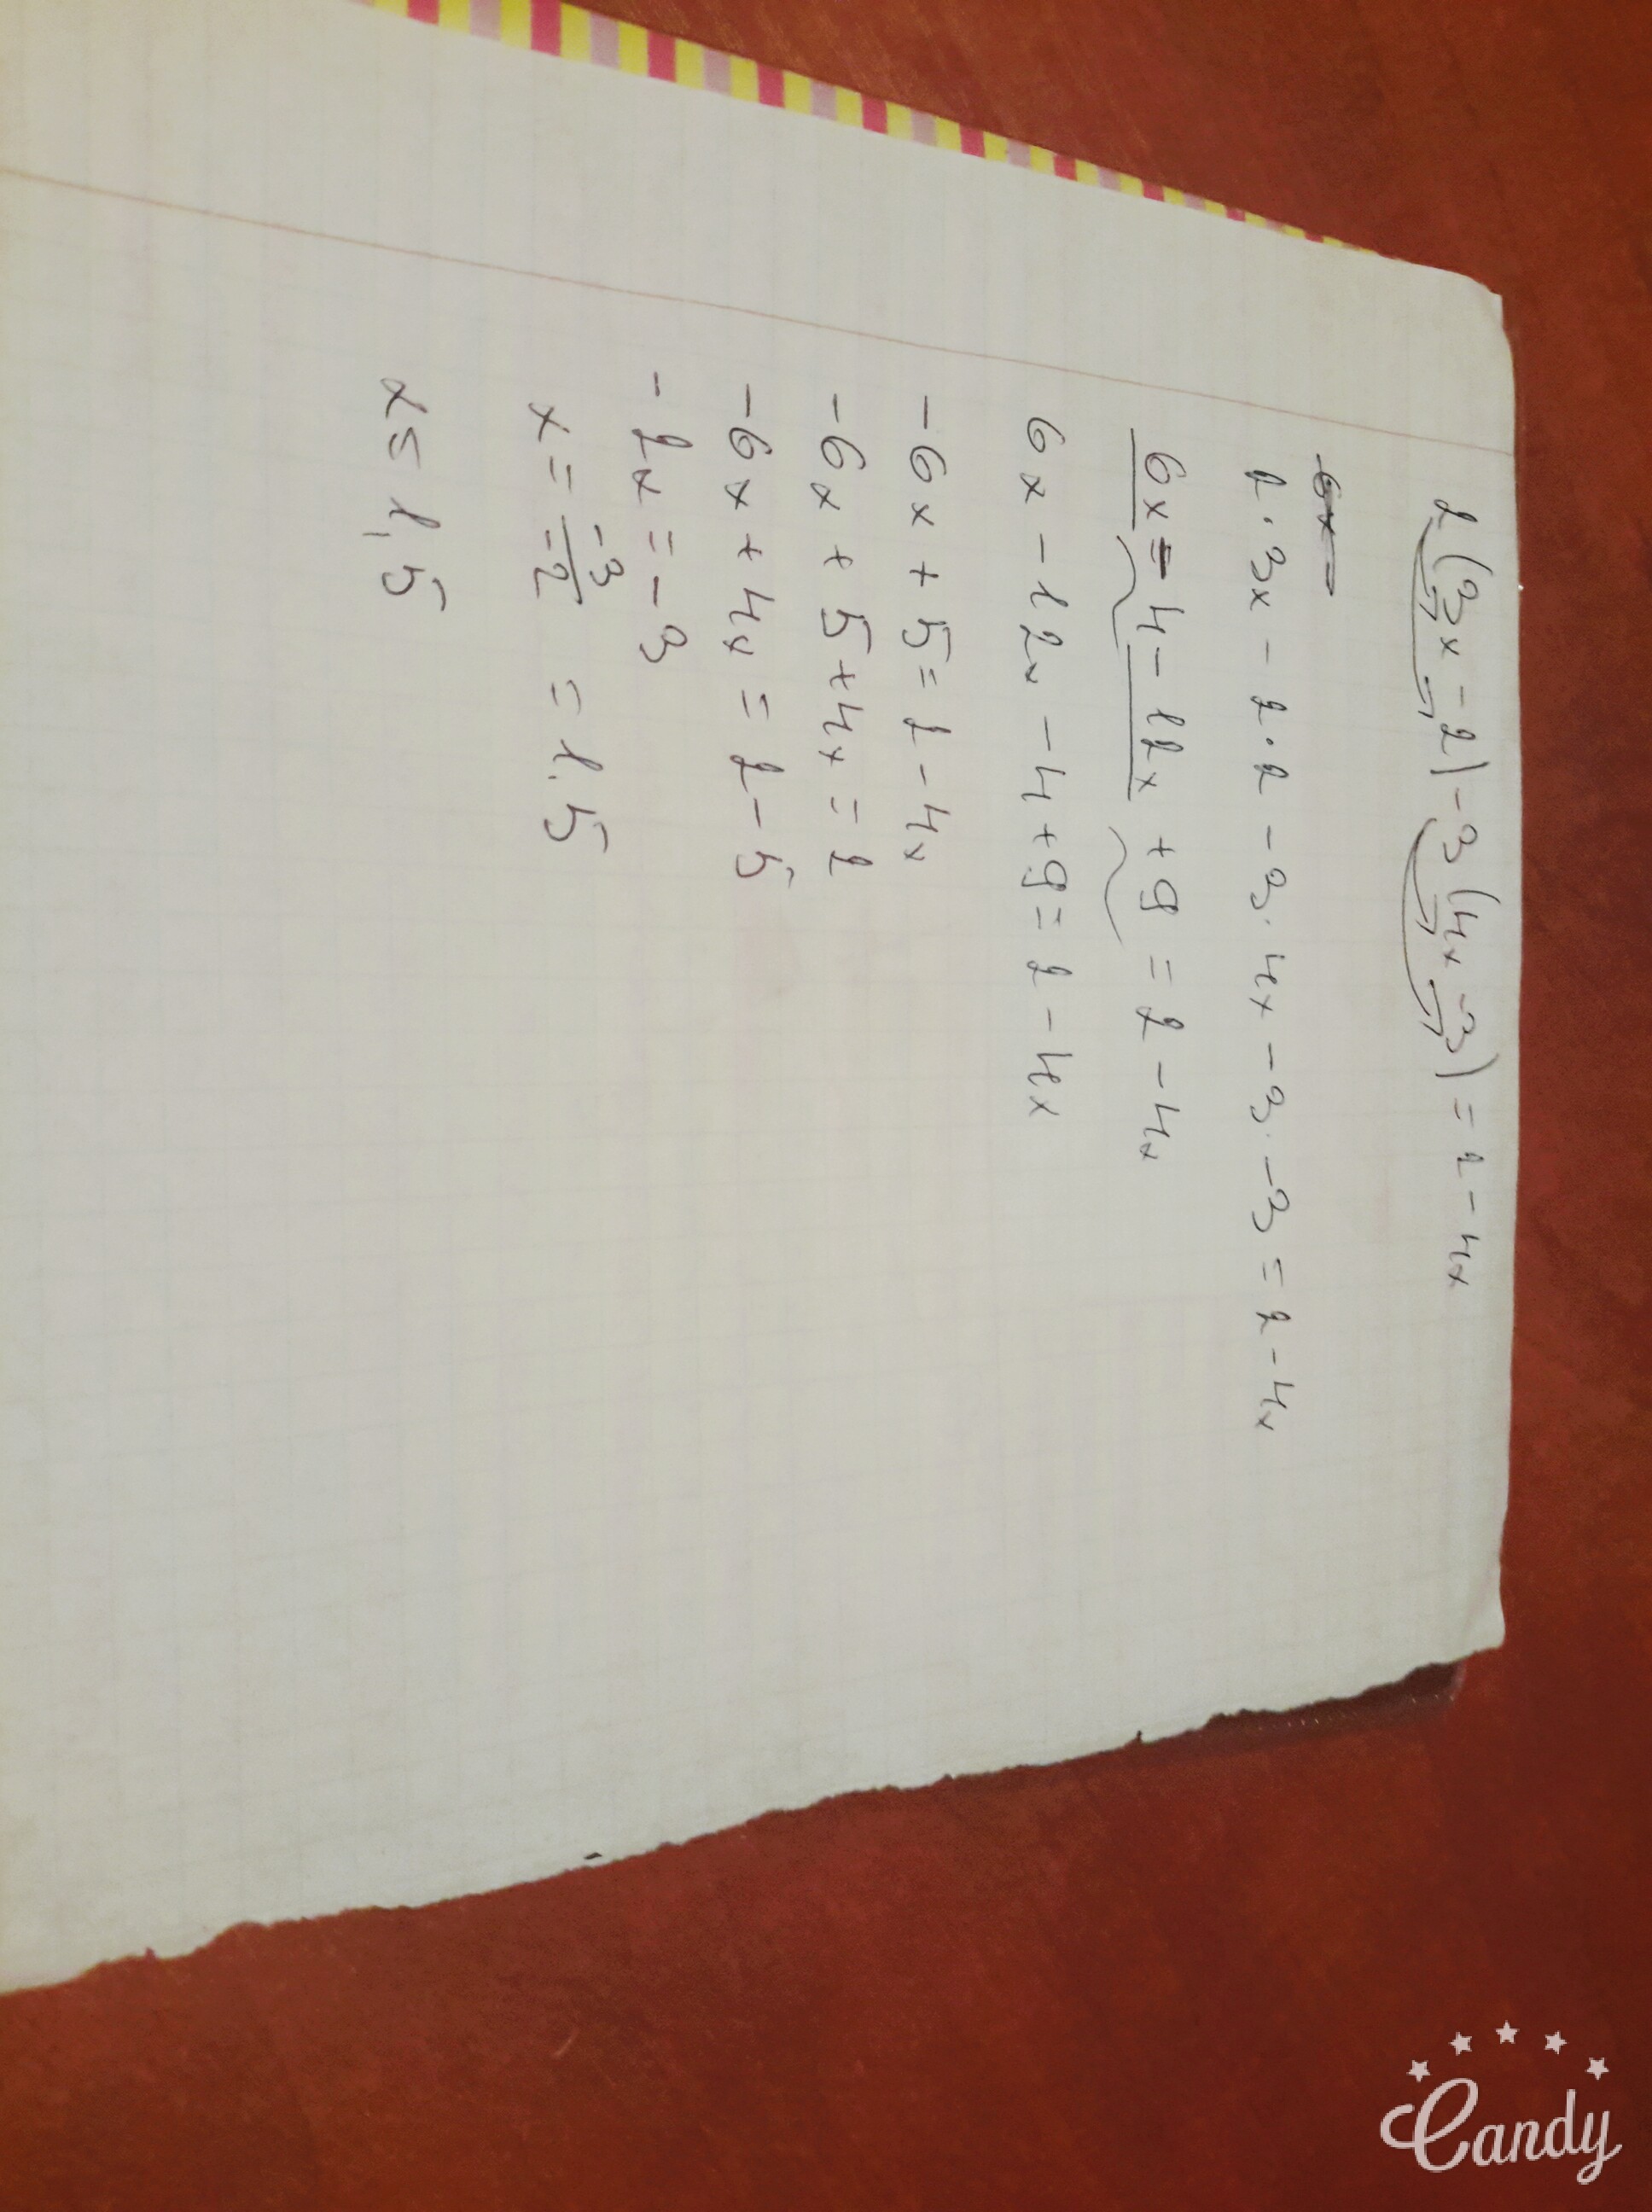 2(3x-2)-3(4x-3)=2-4x
2·3x-2·2-3·4x-3·-3=2-4x
6x-4-12x+9=2-4x
6x-12x-4+9=2-4x
-6x+5=2-4x
-6x+5+4x=2
-6x+4x=2-5
-2x=-3
x=-3/-2=1,5
x=1,5
Candy